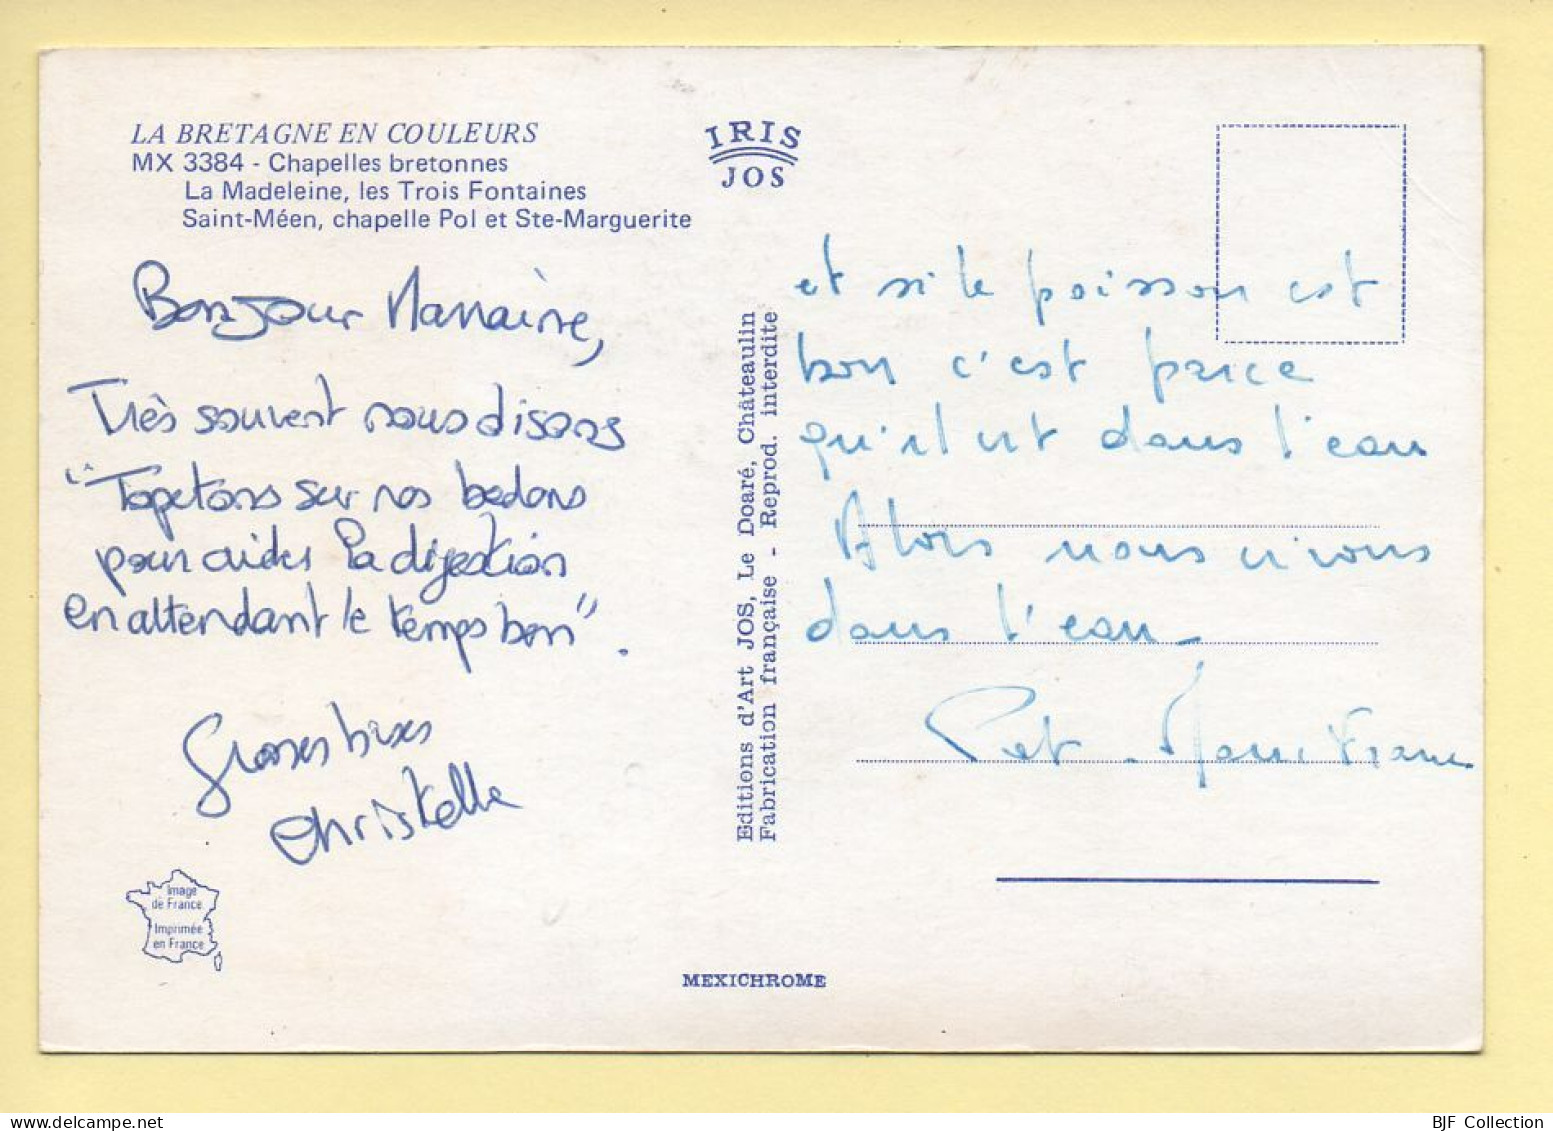 LA BRETAGNE EN COULEURS
MX 3384 - Chapelles bretonnes
La Madeleine, les Trois Fontaines
Saint-Méen, chapelle Pol et Ste-Marguerite
IRIS
JOS
Bonjour Marraine,
Très souvent nous disons
"Tapetons sur nos bedons
pour aider la digestion
en attendant le temps bon".
Grosses bises
Christelle
Image
de France
Imprimée
en France
Editions d'Art JOS, Le Doaré, Châteaulin
Fabrication française - Reprod. interdite
et si le poisson est
bon c'est parce
qu'il est dans l'eau
Alors nous vivons
dans l'eau
et Marie France
MEXICHROME
BJF Collection